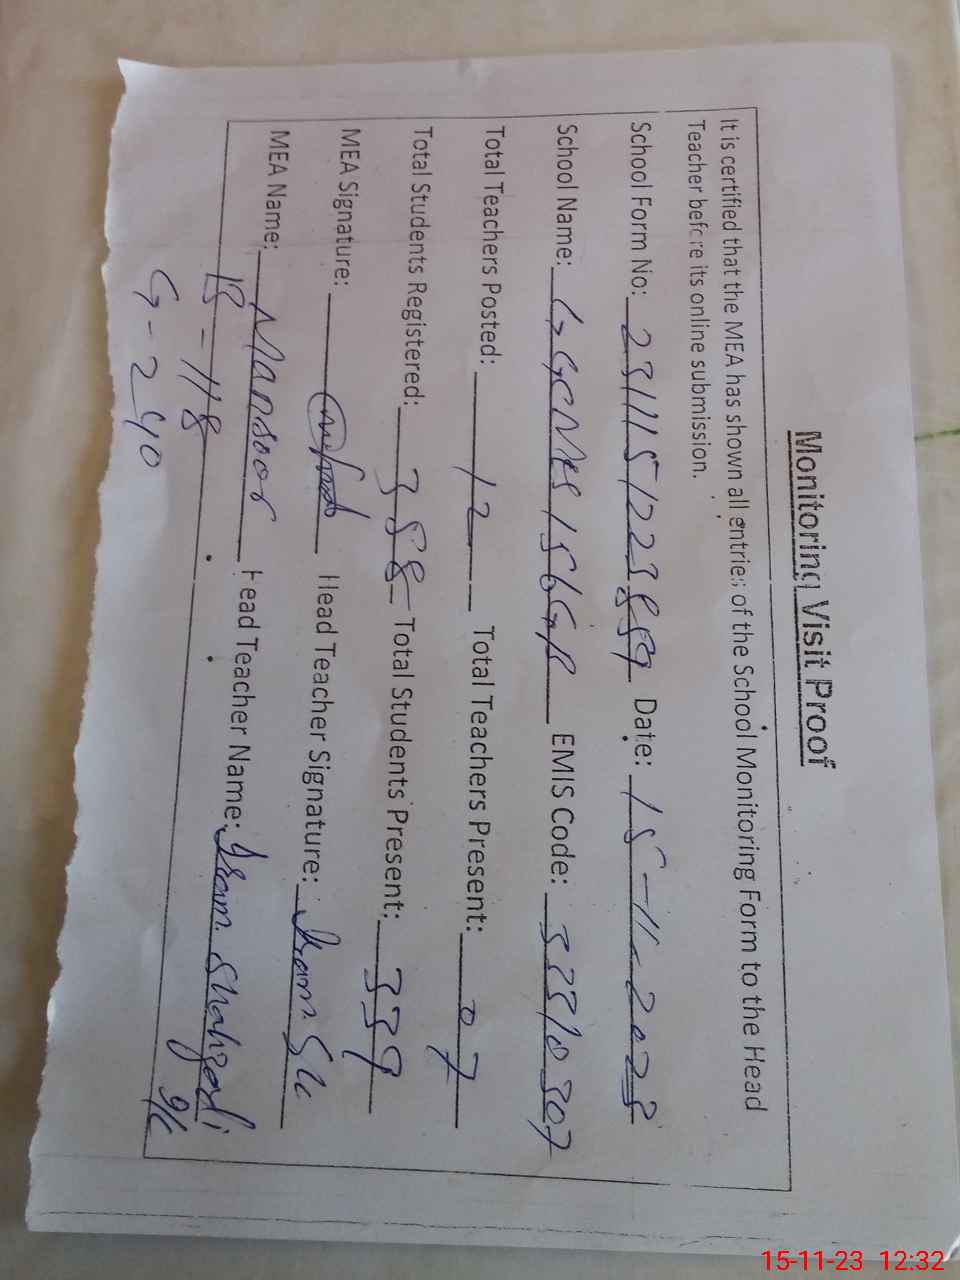 Monitoring Visit Proof
It is certified that the MEA has shown all entries of the School Monitoring Form to the Head
Teacher before its online submission.
School Form No: 2311151223889 Date: 15-11-2023
School Name: GGCMES 156GB EMIS Code: 33310307
Total Teachers Posted: 12 Total Teachers Present: 07
Total Students Registered: 388 Total Students Present: 339
MEA Signature: Head Teacher Signature:
MEA Name: Mansoor Head Teacher Name: Iram Shahzadi
B-118
G-240
15-11-23 12:32